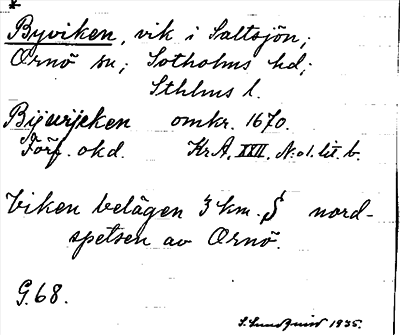 Byviken, vik i Saltsjön;
Ornö sn; Sotholms hd;
Sthlms l.
Bijwijcken omkr. 1670.
Förf. okd. KrA. XXII. N:o 1. lit. b.
Viken belägen 3 km. S nord-
spetsen av Ornö.
G.68.
S. Sundquist 1935.